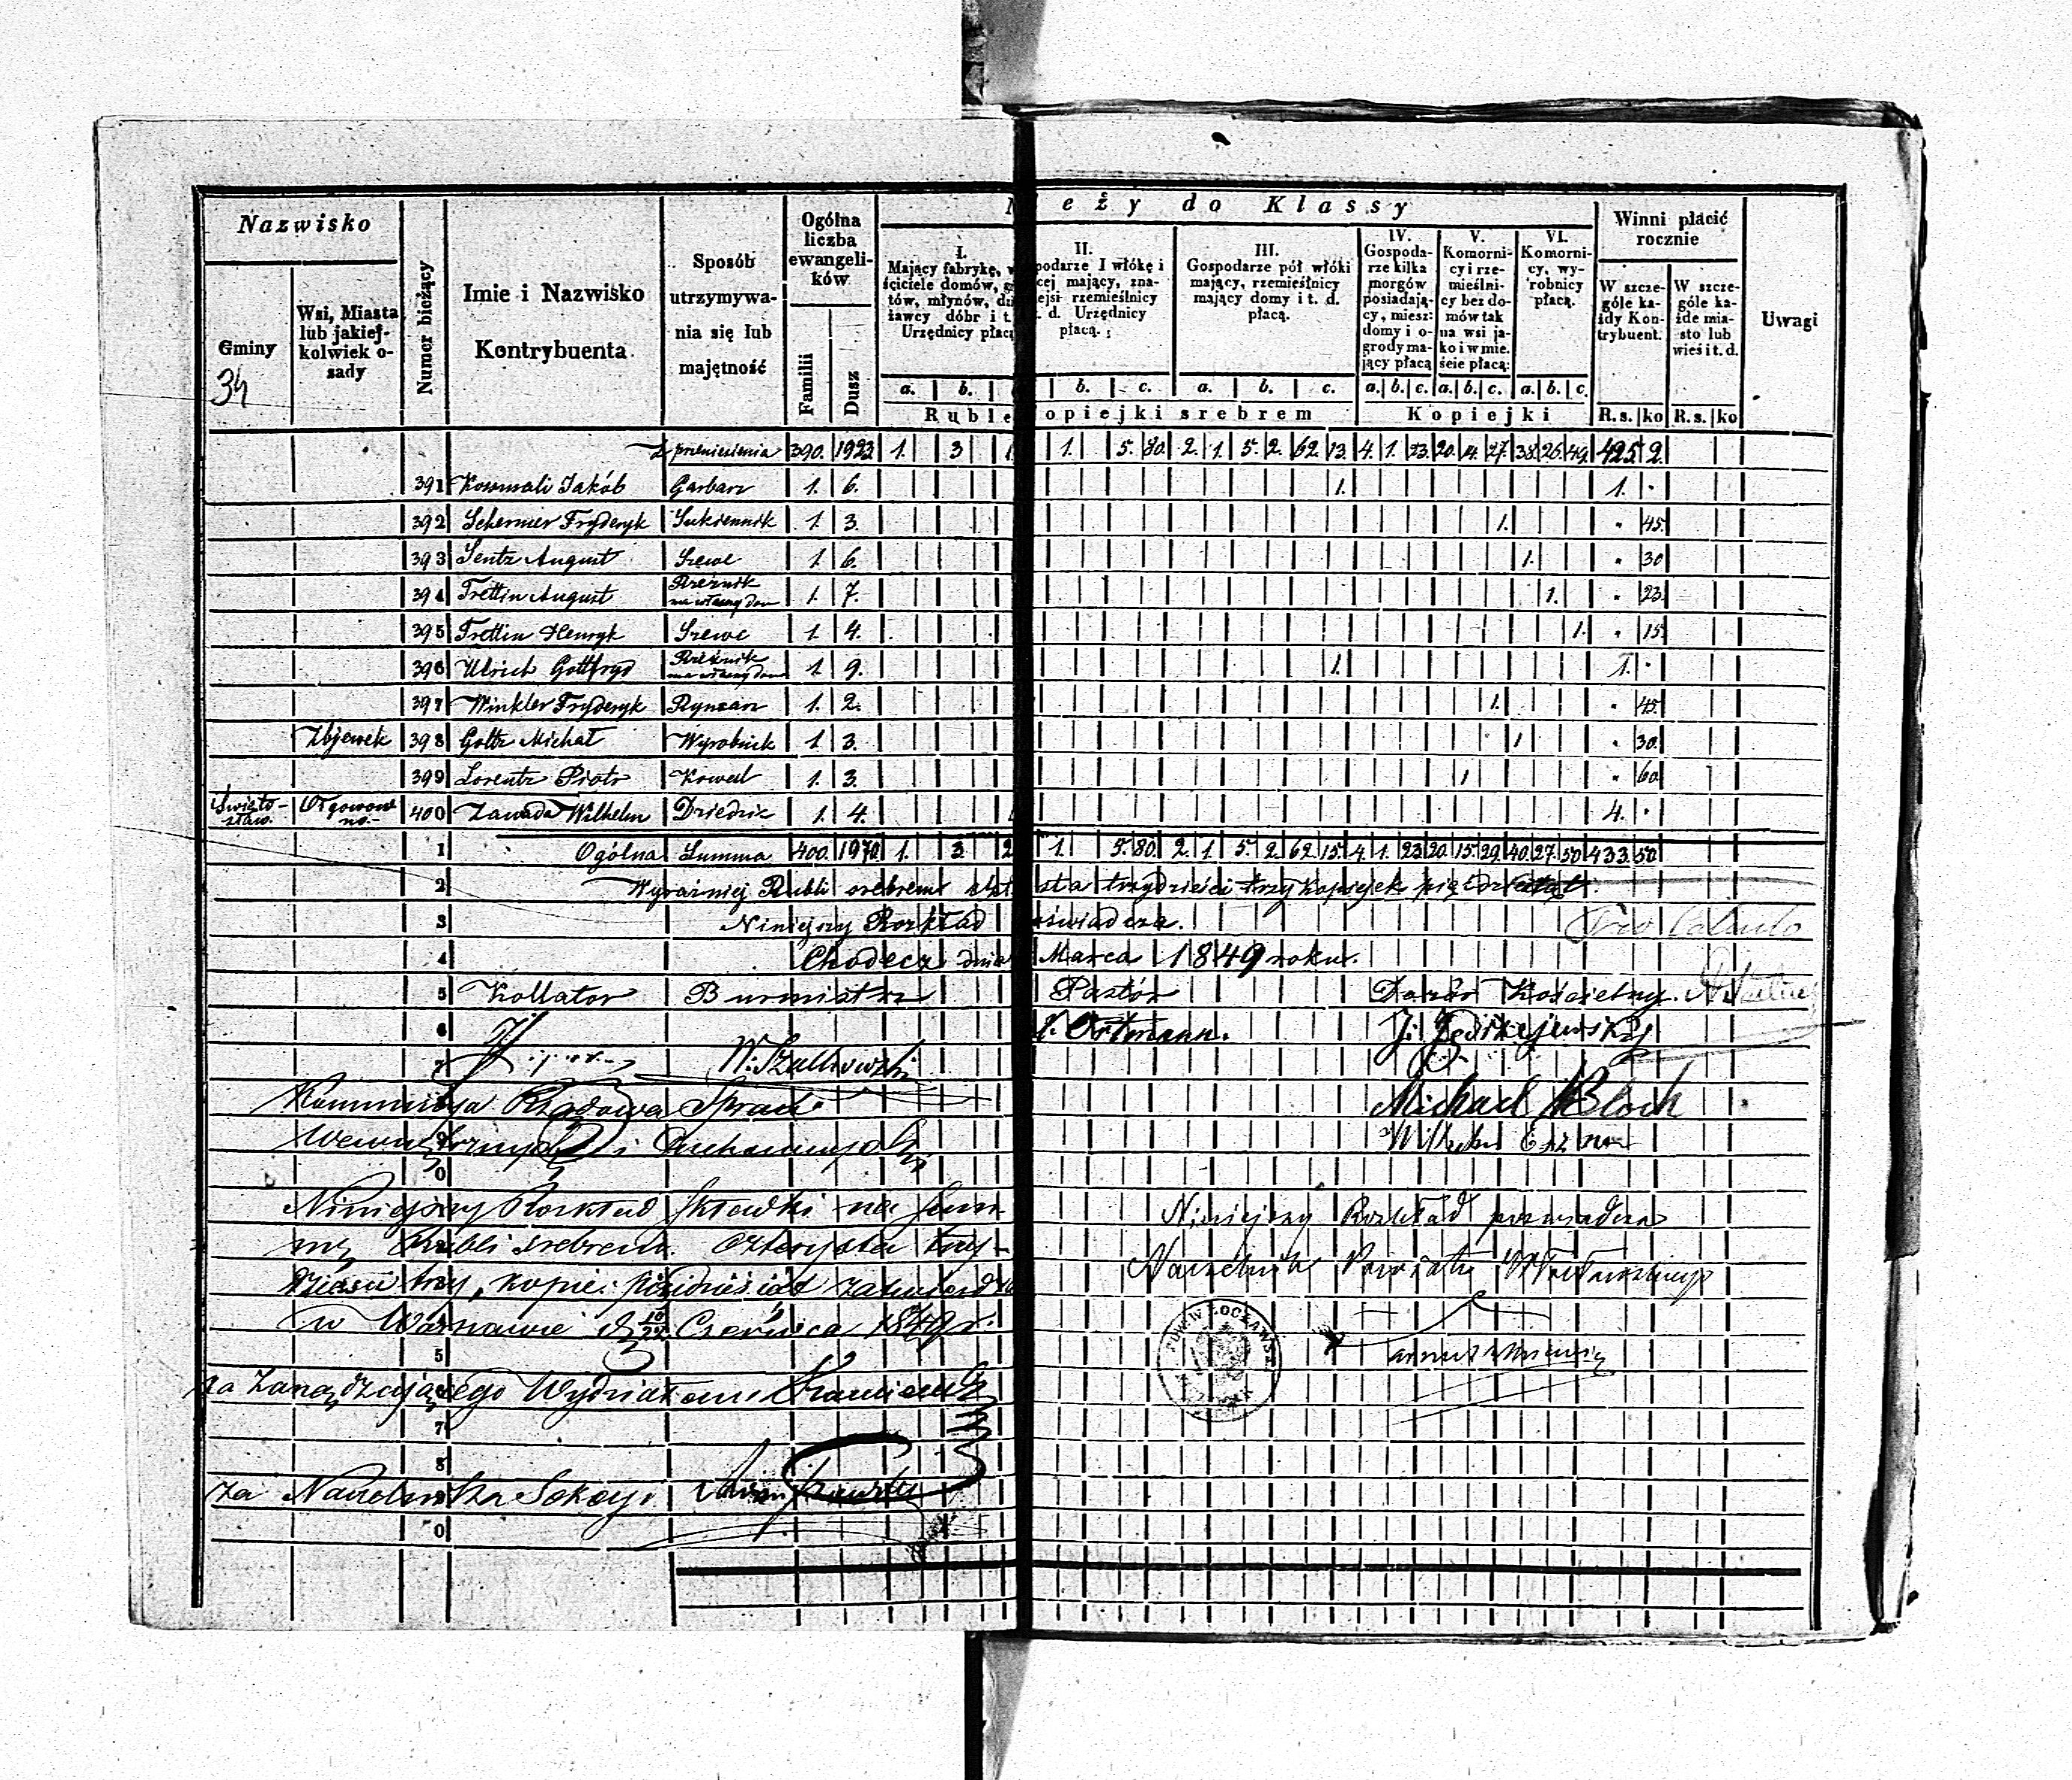 Nazwisko
Gminy
34
Wsi, Miasta lub jakiej-kolwiek o-sady
Numer bieżący
Imie i Nazwisko Kontrybuenta.
Sposób utrzymywa-nia się lub majętność
Ogólna liczba ewangeli-ków
Familii
Dusz
eży do Klassy
I.
Mający fabrykę, w
ściciele domów, g
tów, młynów, dzi
żawcy dóbr i t.
Urzędnicy płac
II.
podarze I włókę i
cej mający, zna-
ejsi rzemieślnicy
. d. Urzędnicy
płacą.
III.
Gospodarze pół włóki
mający, rzemieślnicy
mający domy i t. d.
płacą.
IV.
Gospoda-
rze kilka
morgów
posiadają-
cy, miesz:
domy i o-
grody ma-
jący płacą
V.
Komorni-
cy i rze-
mieślni-
cy bez do-
mów tak
na wsi ja-
ko i w mie.
ście płacą:
VI.
Komorni-
cy, wy-
robnicy
płacą.
Winni płacić rocznie
W szcze-
góle ka-
żdy Kon-
trybuent.
W szcze-
góle ka-
żde mia-
sto lub
wieś i t. d.
Uwagi
a. b. b. c. a. b. c. a. b. c. a. b. c. a. b. c.
Ruble opiejki srebrem Kopiejki R.s. ko R.s. ko
Z przeniesienia 390. 1923 1. 3 1 1. 5. 80. 2. 1. 5. 2. 62. 13. 4. 1. 23. 20. 14. 27. 38. 26. 49. 425. 2.
391 Kossmali Jakób Garbarz 1. 6. 1. 1. .
392 Schermer Fryderyk Sukiennik 1. 3. 1. " 45.
393 Sentz August Szewc 1. 6. 1. " 30
394 Trettin August Rzeznik ma własny dom 1. 7. 1. " 23.
395 Trettin Henryk Szewc 1. 4. 1. " 15.
396 Ulrich Gottfryd Rzeznik ma własny dom 1 9. 1. 1. .
397 Winkler Fryderyk 1. 2. 1. " 45.
Zbijewek 398 Goltz Michał Wyrobnik 1. 3. 1 " 30.
399 Lorentz Piotr Kowal 1. 3. 1 " 60.
Święto-sław. 400 Zawada Wilhelm Dziedzic 1. 4. 4. .
1 Ogólna Summa 400. 1970. 1. 3. 2 1. 5. 80. 2. 1. 5. 2. 62. 15. 4. 1. 23. 20. 15. 29. 40. 27. 50. 433. 50.
2 Wyraźniej Rubli srebrem sta trzydzieści trzy kopiejek pięćdziesiąt
3 Niniejszy Rozkład oświadcza.
4 Chodecz dnia Marca 1849 roku.
5 Kollator Burmistrz Pastor Dozór Kościelny.
6 Ortmann. J. Jędrzejewski
7
Kommissya Rządowa Spraw Michael Bloch
Wewnętrznych i Duchownych Wilhelm
0
Niniejszy Rozkład składki na Sum-
mę Rubli srebrem Czterysta trzy-
dzieści trzy, kopie: pięćdziesiąt zatwierdza
w Warszawie d 10/22 Czerwca 1849 r.
5
za Zarządzającego Wydziałem
7
8
za Naczelnika Sekcyi
0
Niniejszy Rozkład poświadcza
Naczelnik Powiatu Włocławskiego